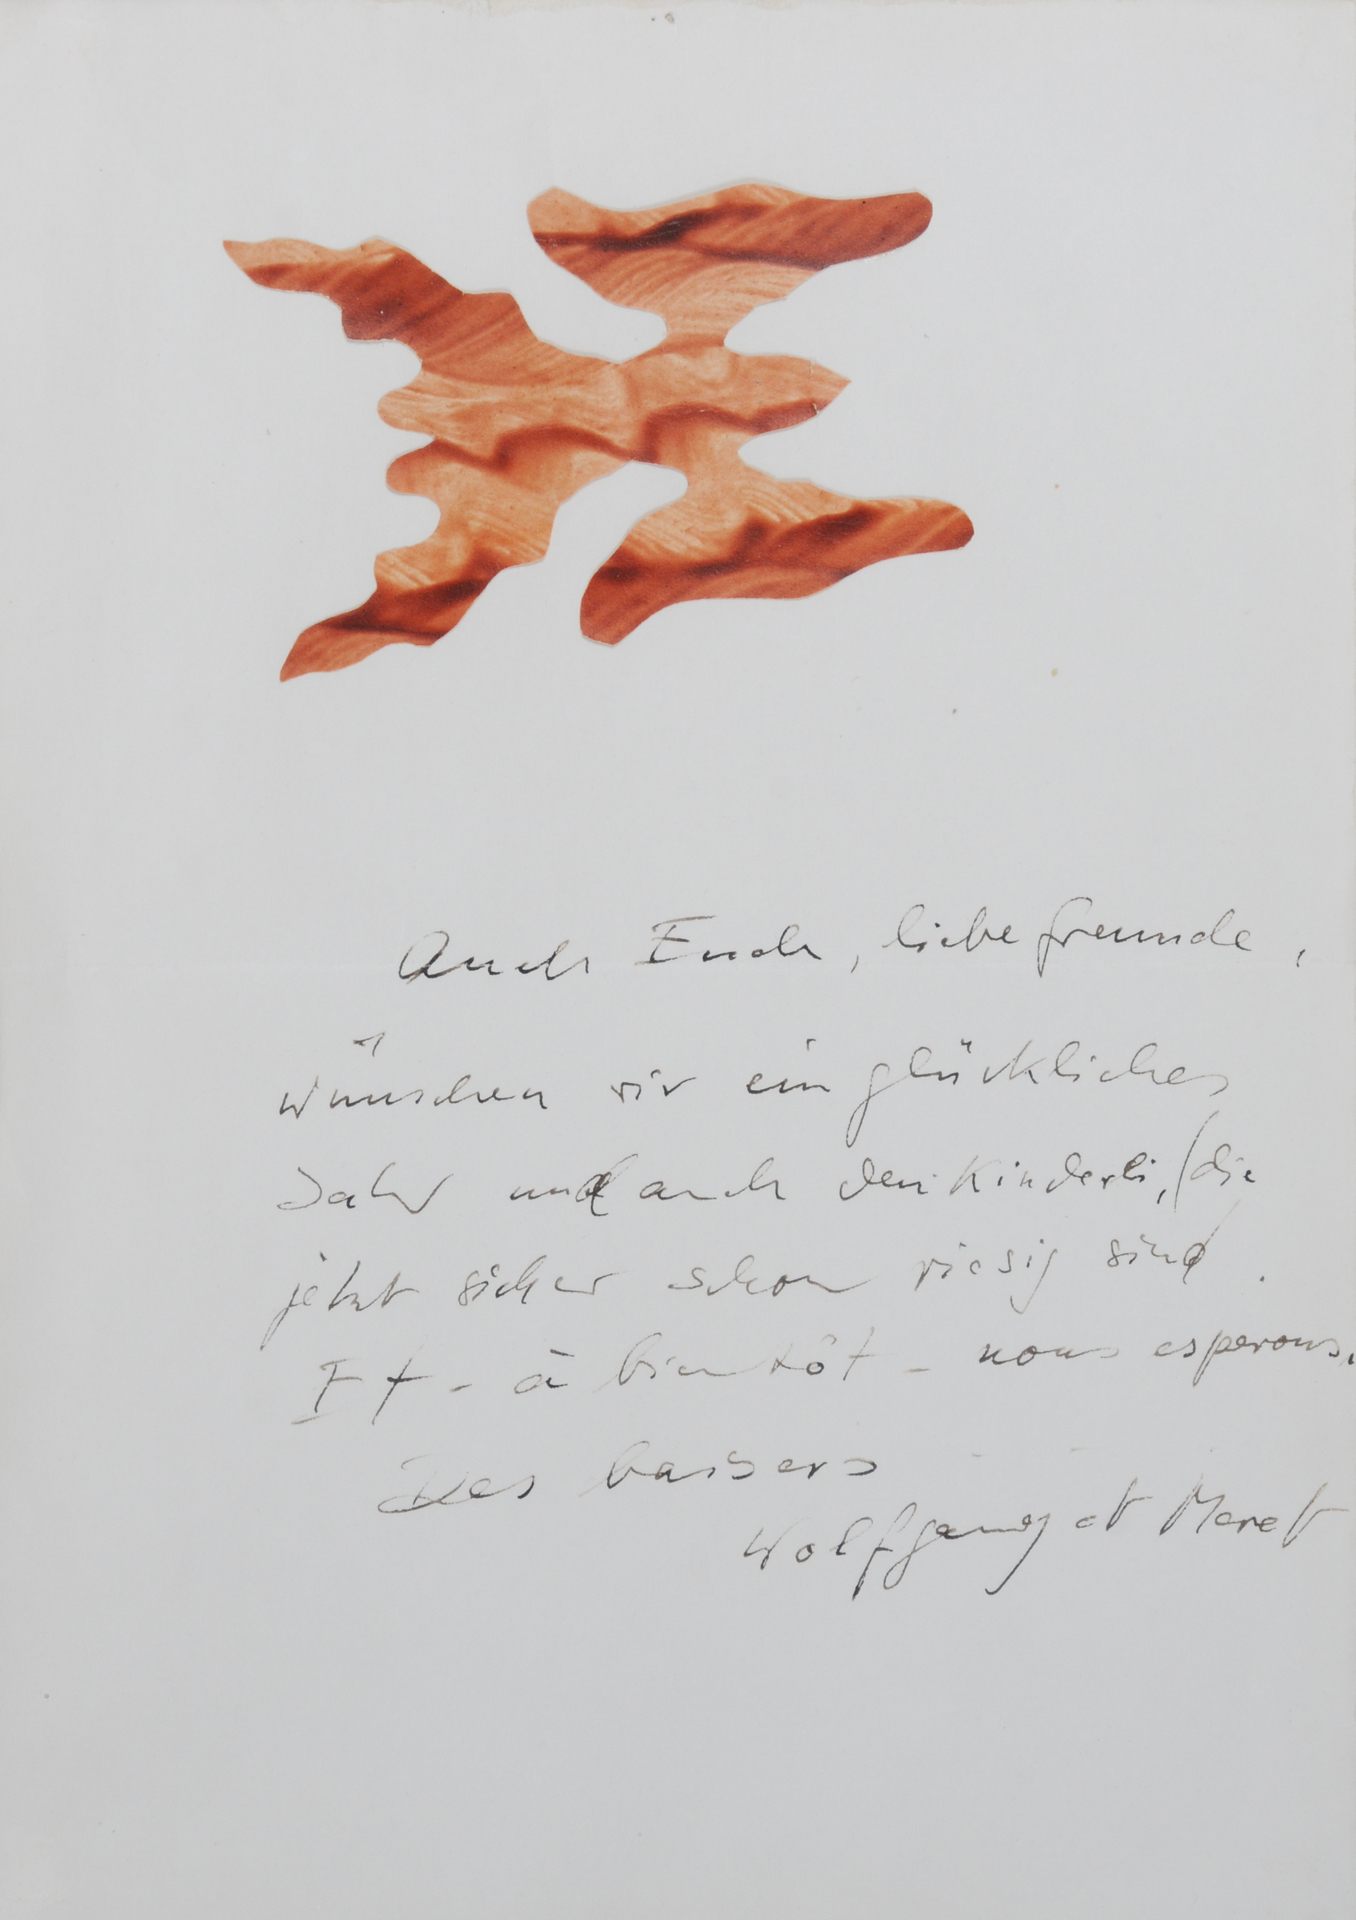 Auch Euch, liebe Freunde,
wünschen wir ein glückliches
Jahr und auch den Kinderli, (die
jetzt sicher schon riesig sind.
Et - à bientôt - nous esperons.
Des baisers
Wolfgang et Meret